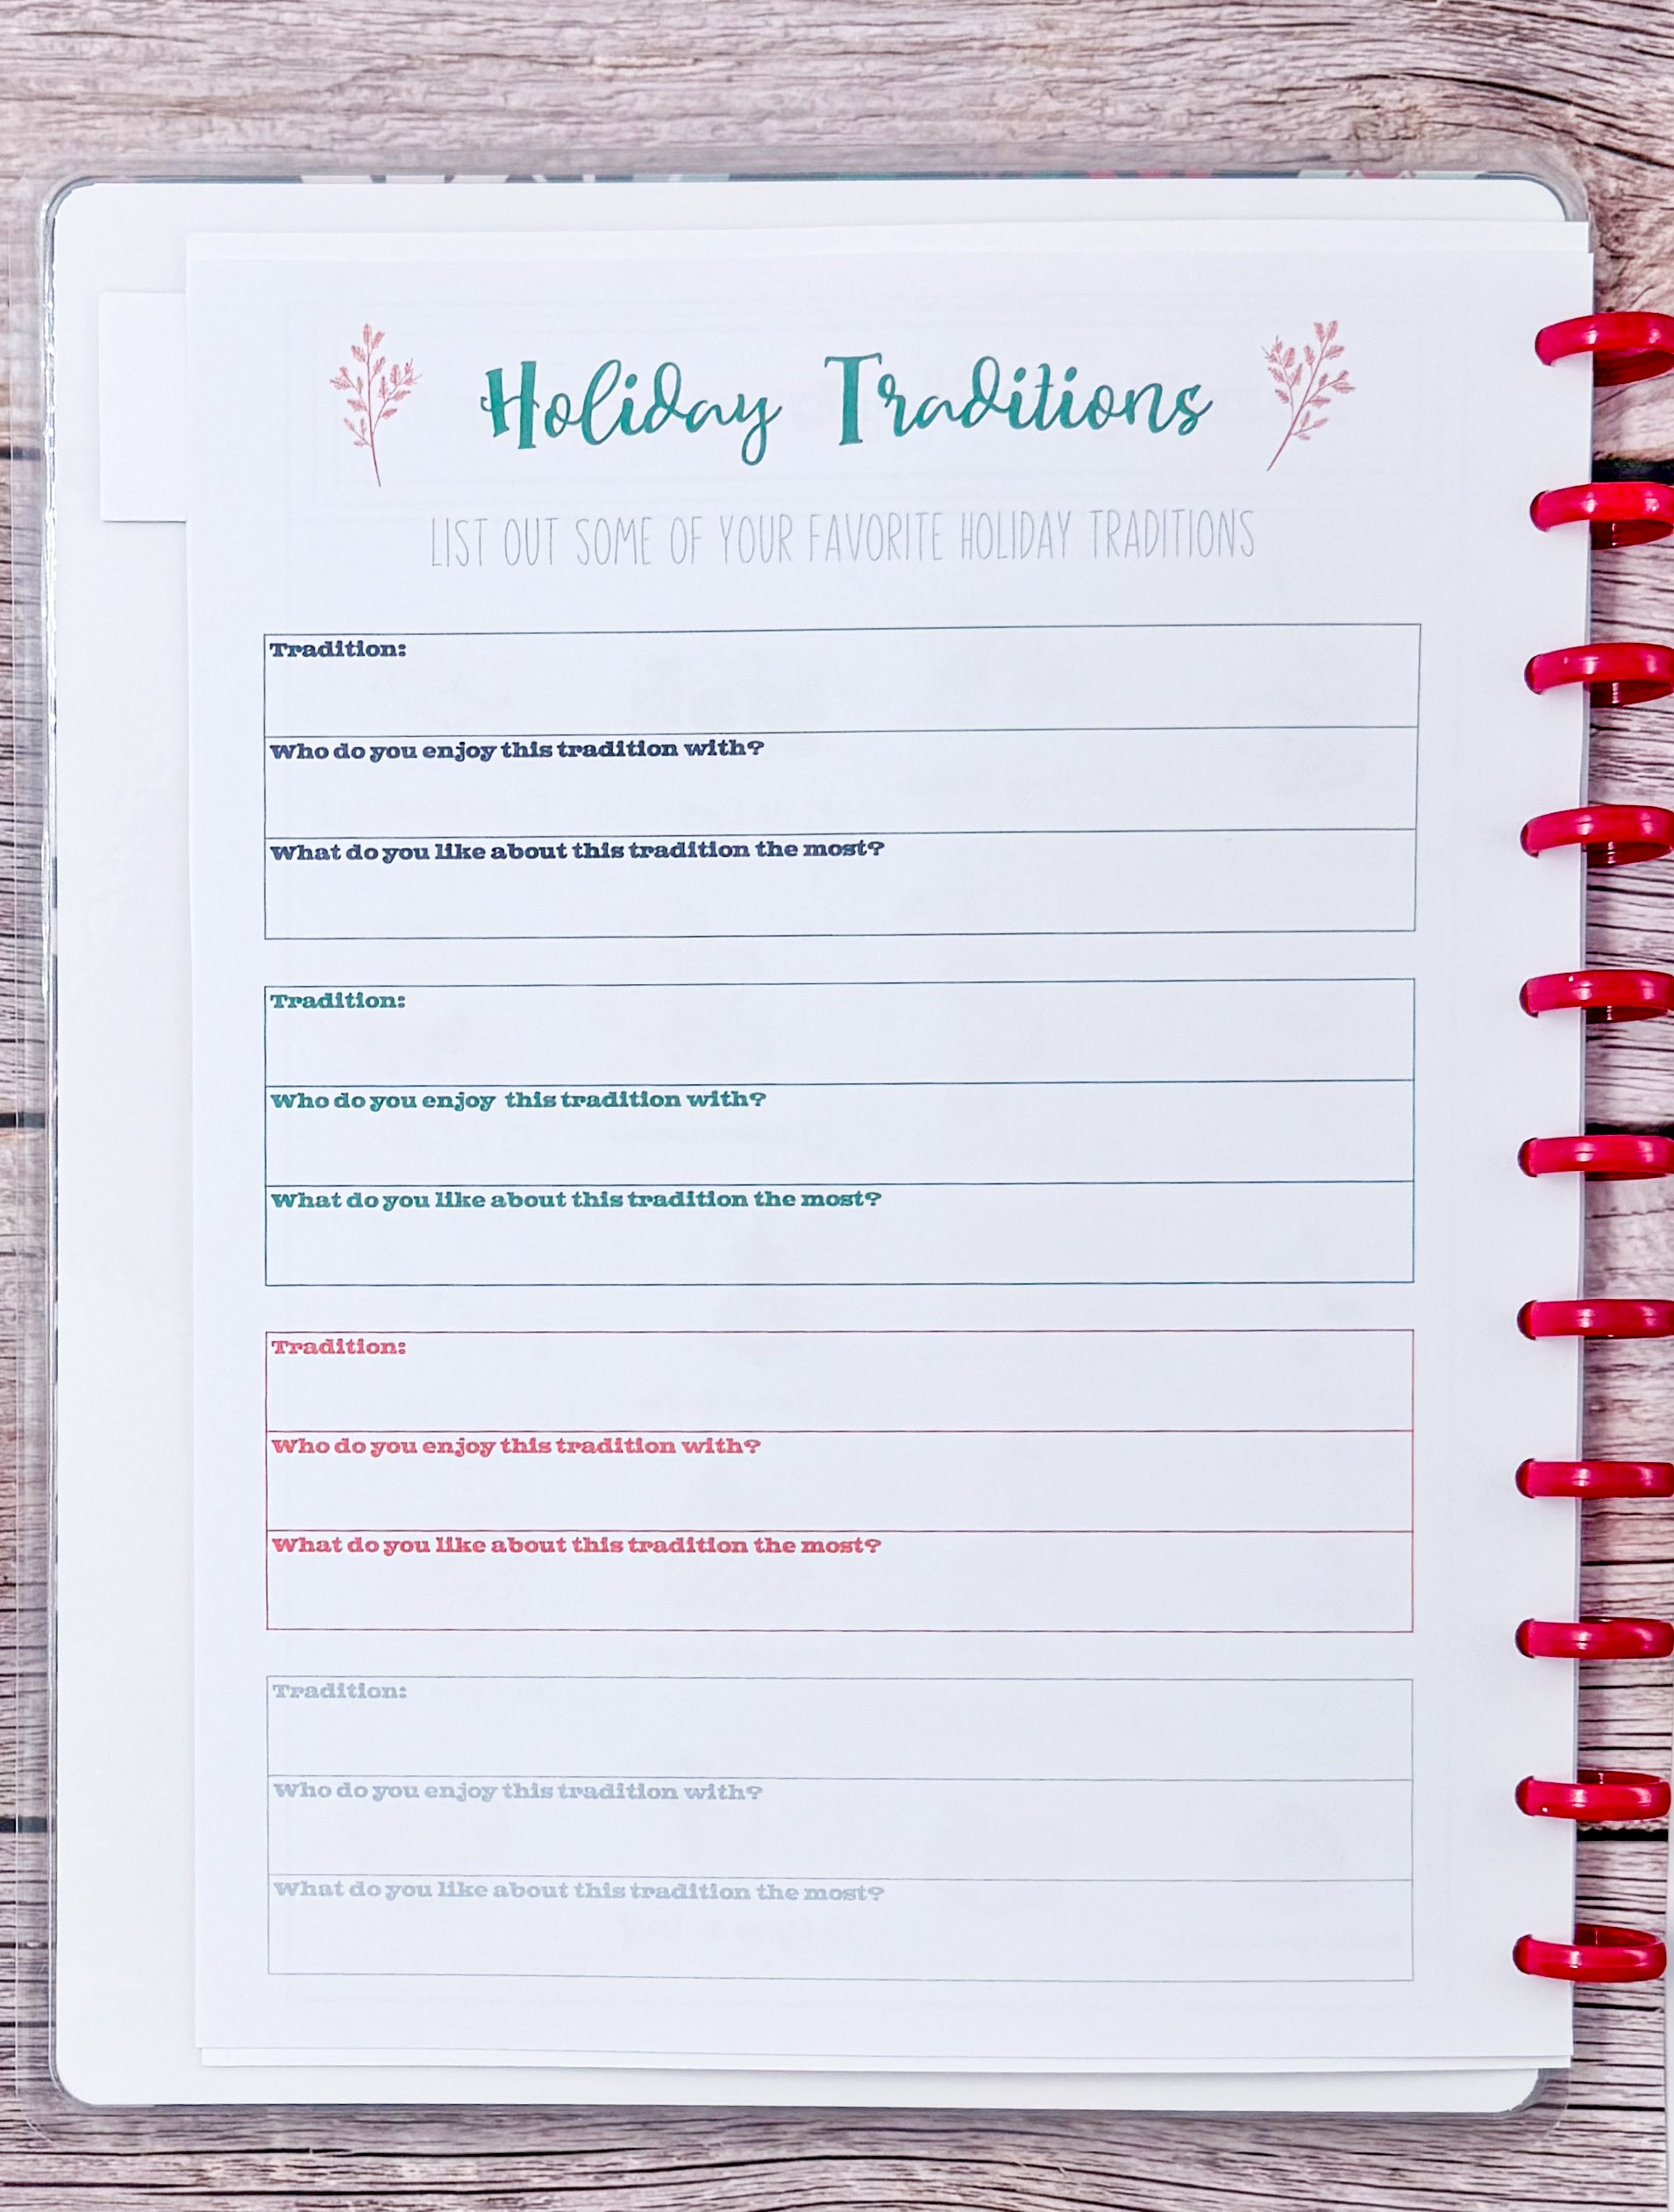 Holiday Traditions
LIST OUT SOME OF YOUR FAVORITE HOLIDAY TRADITIONS
Tradition:
Who do you enjoy this tradition with?
What do you like about this tradition the most?
Tradition:
Who do you enjoy this tradition with?
What do you like about this tradition the most?
Tradition:
Who do you enjoy this tradition with?
What do you like about this tradition the most?
Tradition:
Who do you enjoy this tradition with?
What do you like about this tradition the most?